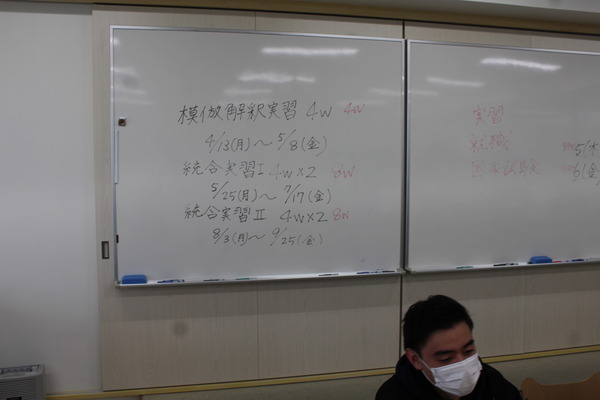 模倣解釈実習 4w 4w
4/13(月)～5/8(金)
統合実習I 4w×2 8w
5/25(月)～7/17(金)
統合実習II 4w×2 8w
8/3(月)～9/25(金)
実習
就職